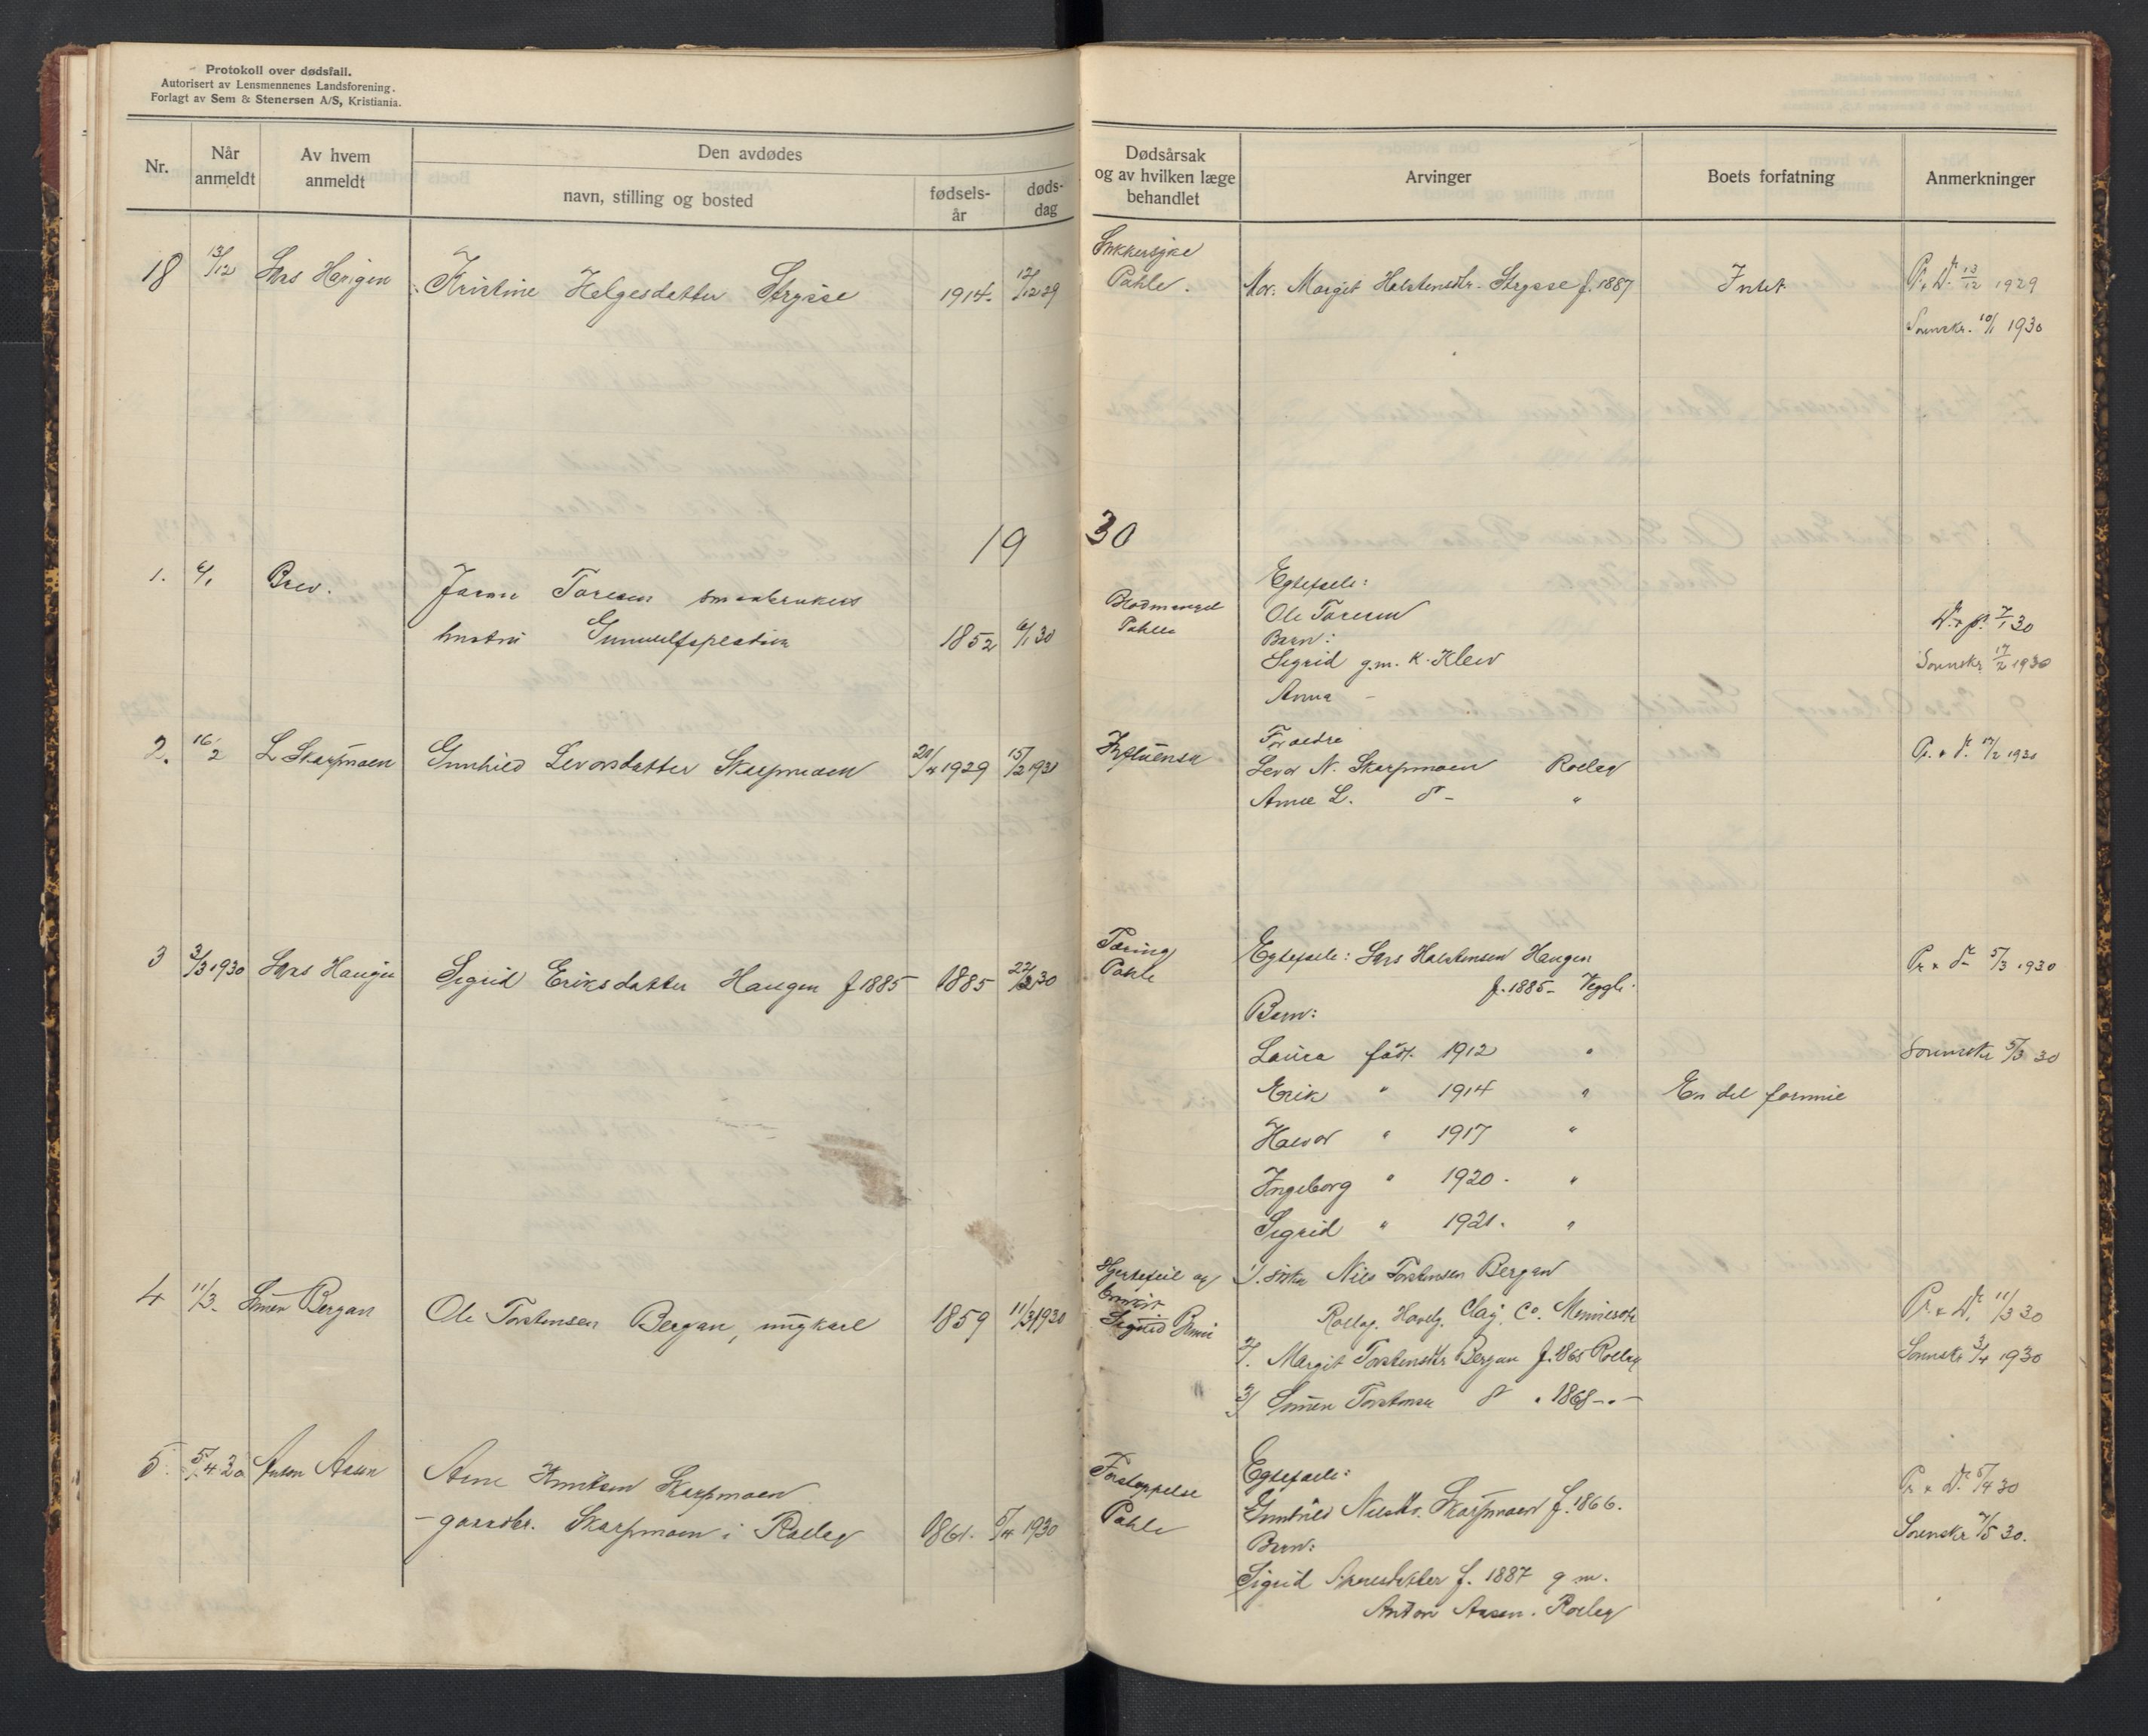 Protokoll over dødsfall.
Autorisert av Lensmennenes Landsforening.
Forlagt av Sem & Stenersen A/S, Kristiania.
Nr.
Når anmeldt
Av hvem anmeldt
Den avdødes
navn, stilling og bosted
fødsels-år
døds-dag
Dødsårsak og av hvilken læge behandlet
Arvinger
Boets forfatning
Anmerkninger
18 13/12 Lars Haugen Kristine Helgesdatter Strysse 1914. 12/12 29
Sukkersyke
Pahle. Mor: Margit Halstensdtr. Strysse f. 1887 Intet Pr. & D. 13/12 1929
Sorenskr. 10/1 1930
1930
1. 6/1 Brev. Toresen smaabrukers
hustru 1852 6/1 30
Blodmangel
Pahle
Egtefæle:
Ole Toresen
Barn:
Sigrid g.m. K. Kleiv
Anna -
D. & p. 7/1 30
Sorenskr. 17/2 1930
2. 16/2 L Skarpmoen Gunhild Levorsdatter Skarpmoen 1929 15/2 1930
Influensa
Foreldre
Levor N. Skarpmoen Rollag
Anne L. d- "
Pr. & d. 17/2 1930
3 3/3 1930 Lars Haugen Sigrid Eriksdatter Haugen f 1885 1885 30
Tæring
Pahle
Egtefæle: Lars Halstensen Haugen
f. 1885- Veggli.
Barn:
Laura født. 1912 "
Erik " 1914 "
Halvor " 1917 "
Ingeborg " 1920. "
Sigrid " 1921. "
En del formue
Pr & d- 5/3 1930
Sorenskr 5/3 30
4 11/3. Simen Bergan Ole Torstensen Bergan, ungkarl 1859 11/3 1930
Hjertefeil og
1/. Nils Torstensen Bergan
Rollag. Clay. Co. Minnesota
2/. Margit Torstensdtr Bergan f. 1865 Rollag
3/ Simen Torstensen d " 1868 - " -
Pr & D. 11/3 30
Sorenskr 3/4 1930
5. 5/4 30 Anton Aasen Arne Knutsen Skarpmoen
- gaardbr. Skarpmoen i Rollag 1861. 5/4 1930
Forstoppelse
Pahle
Egtefæle:
Gunhild Nilsdtr. Skarpmoen f. 1866.
Barn:
Sigrid Arnesdatter f. 1887 g m.
Anton Aasen. Rollag
Pr & D. 5/4 30
Sorenskr 30.